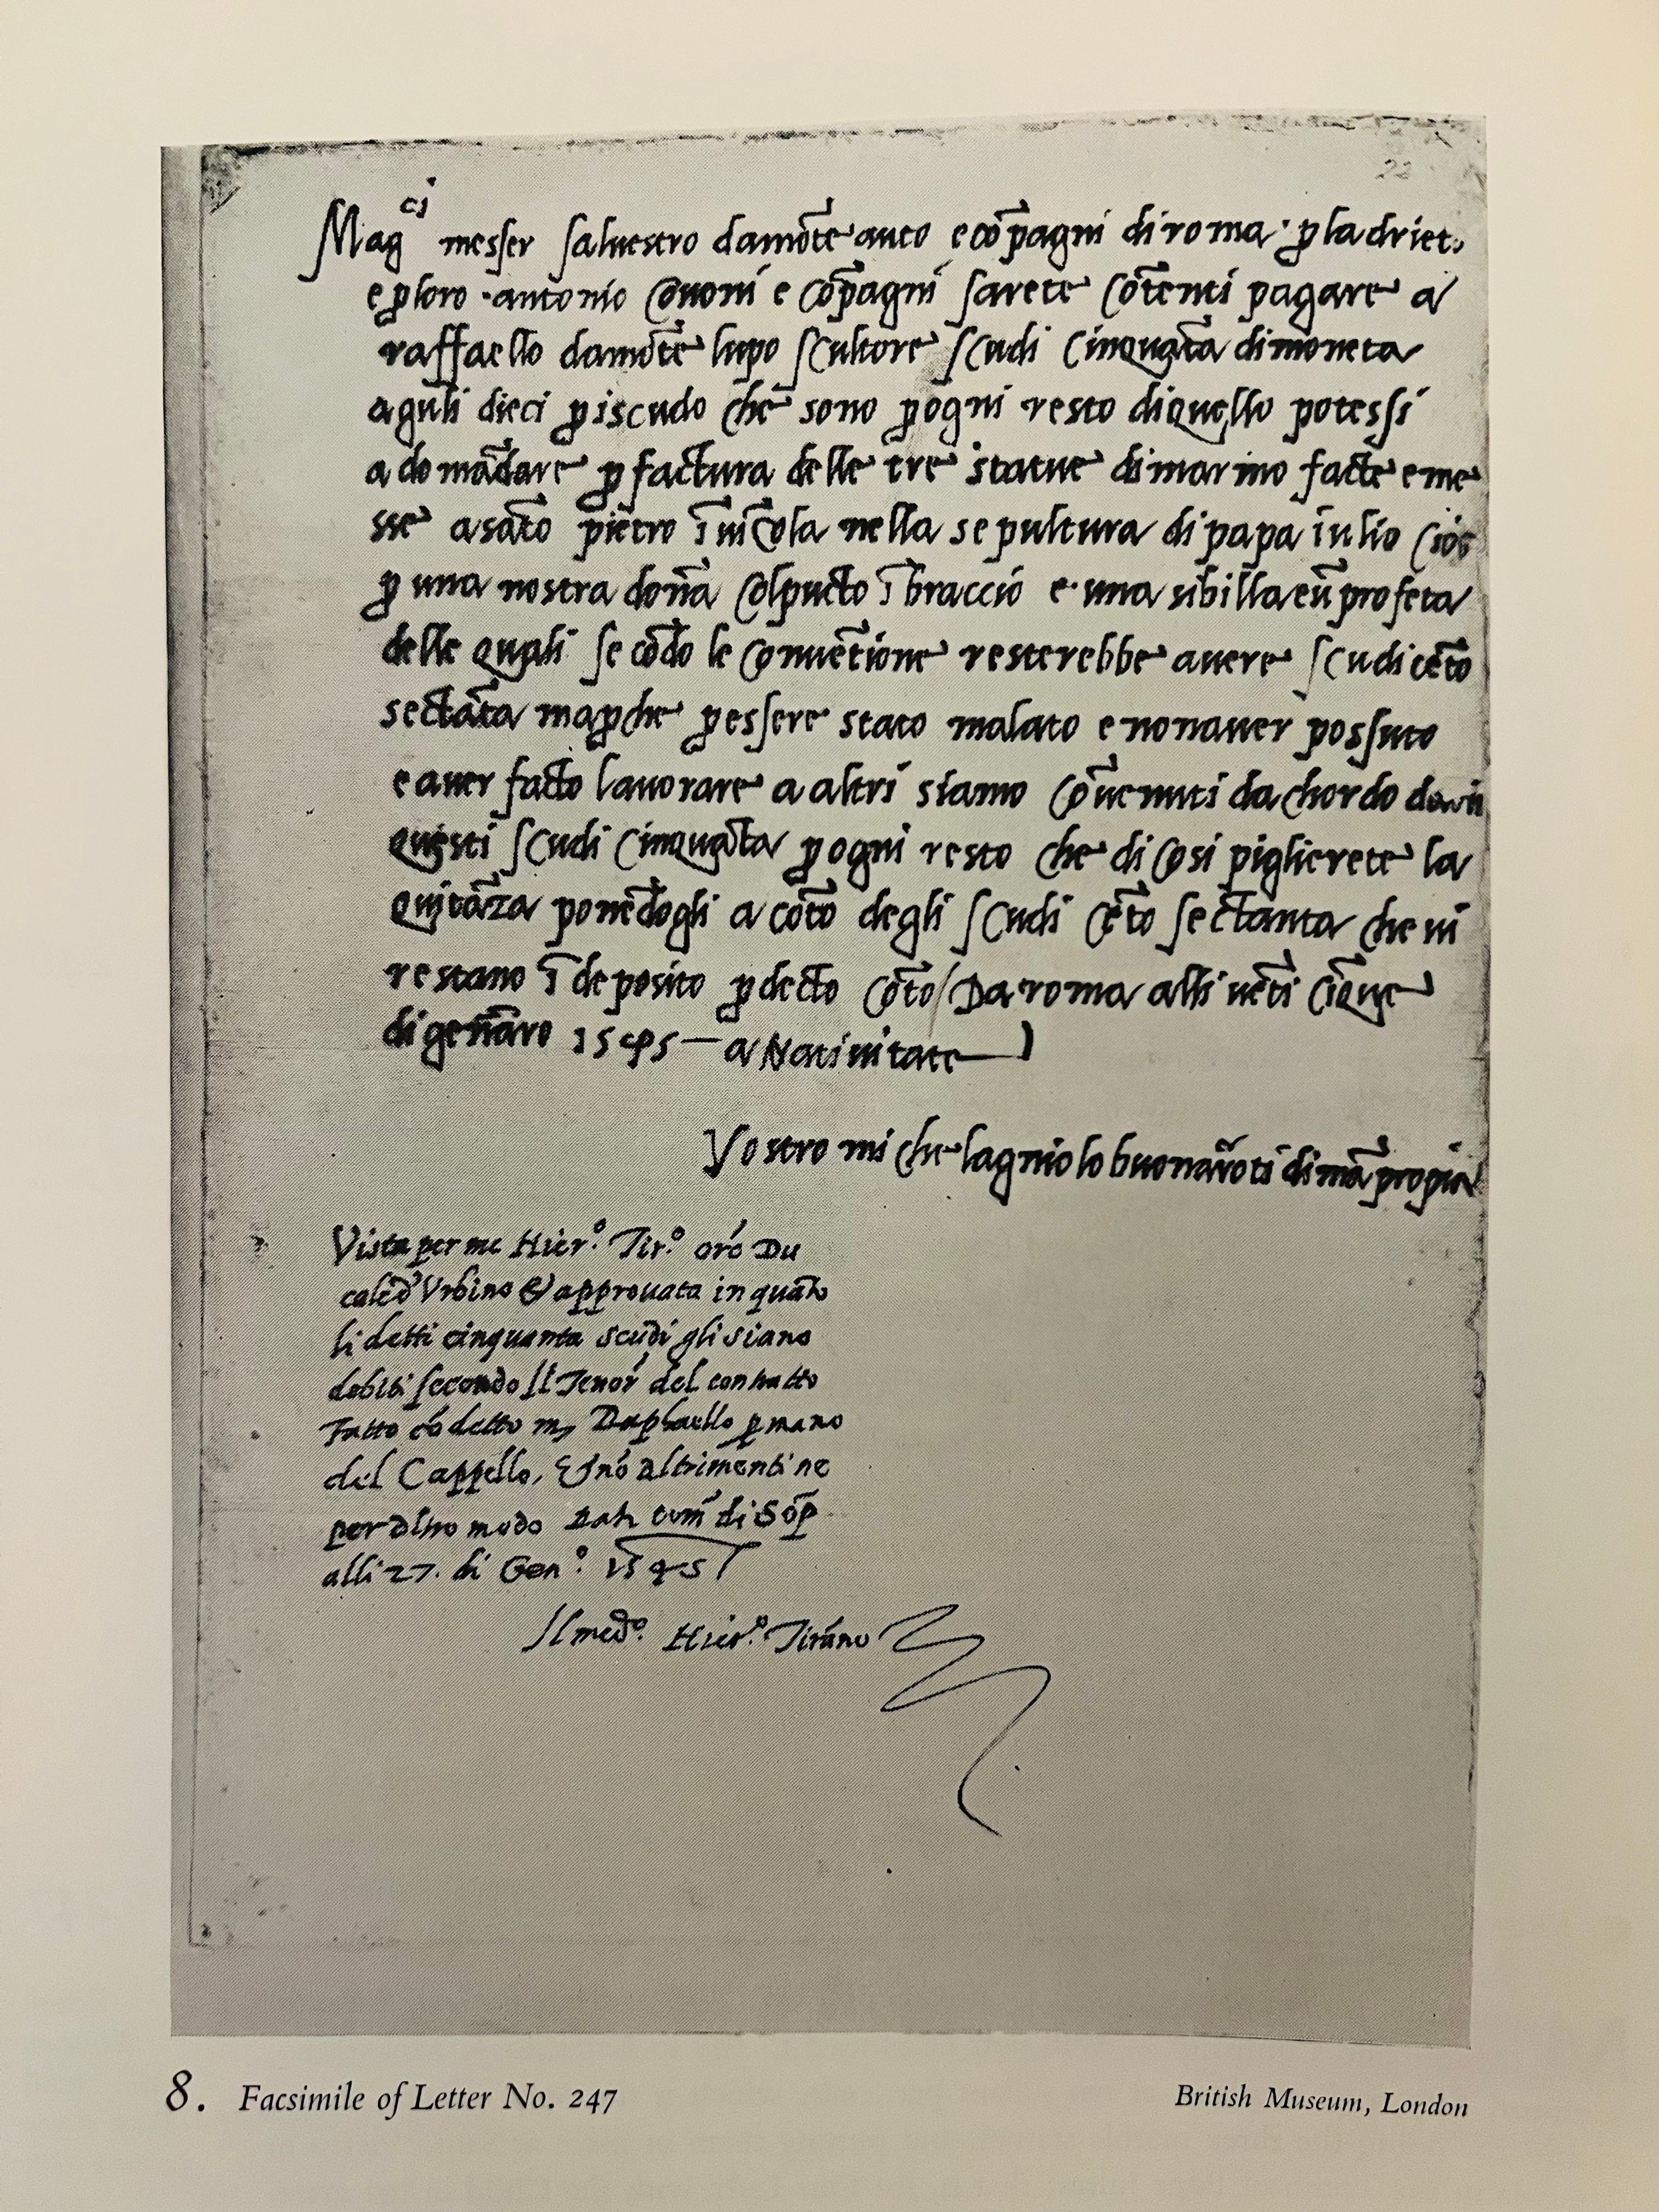 22
Mag^ci messer salvestro damōte auto e cō̄pagni di roma · p̱ la driet.
e p̱ loro · antonio Covoni e cōpagni sarete cōtenti pagare a
raffaello damōte lupo scultore scudi cinquāta di moneta
aguli dieci p̱ iscudo che sono p̱ ogni resto di quello potessi
a domādare p̱ factura delle tre statue di marmo facte e me
sse a sāto pietro ī vīcola nella sepultura di papa iulio cioè
p̱ una nostra dōna col pucto ī braccio e · una sibilla e ū profeta
delle quali secōdo le convētione resterebbe avere scudi cēto
sectāta ma p̱che p̱ essere stato malato e non aver possuto
e aver facto lavorare a altri siamo cōvenuti dachordo
questi scudi cinquāta p̱ ogni resto che di cosi piglierete la
quitāza ponēdogli a cōto degli scudi cēto sectanta che vi
restano ī deposito p̱ decto cōto / Da roma alli vēti cīque
di gēnaro 1545 — a Nativitate —
Vostro michelagniolo buonaroti di mā propia
Vista per me Hier.º Tir.º orō Du
cale d' Urbino & approvata in quāto
li detti cinquanta scudi gli siano
debiti secondo il Tenor del contratto
Fatto cō detto m, Raphaello p̱ mano
del Cappello, Et nō altrimenti ne
per altro modo di S
alli 27. di Gen.º 1545
Il med.º Hier.º Tirāno
8. Facsimile of Letter No. 247
British Museum, London